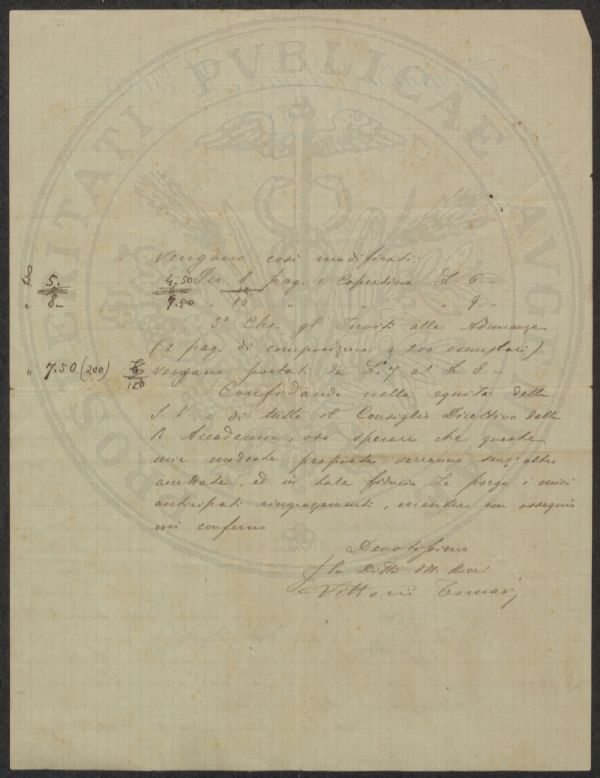 PROSPERITATI PVBLICAE AVGENDAE
Vengano così modificati:
5. 4.50 Per 8 pag. e Copertina £ 6 -
8- 9.50 " 16 " " " 9 -
3° Che gl' Inviti alle Adunanze
(2 pag. di composizione e 200 esemplari)
" 7.50 (200) Vengano portati da £. 7 a £ 8 -
Confidando nella equità della
S. V. e di tutto il Consiglio Direttivo della
R. Accademia, oso sperare che queste
mie modeste proposte verranno senz'altro
accettate, ed in tale fiducia Le porgo i miei
anticipati ringraziamenti, mentre con ossequio
mi confermo
Devotissimo
p. la Ditta M. Ricci
Vittorio